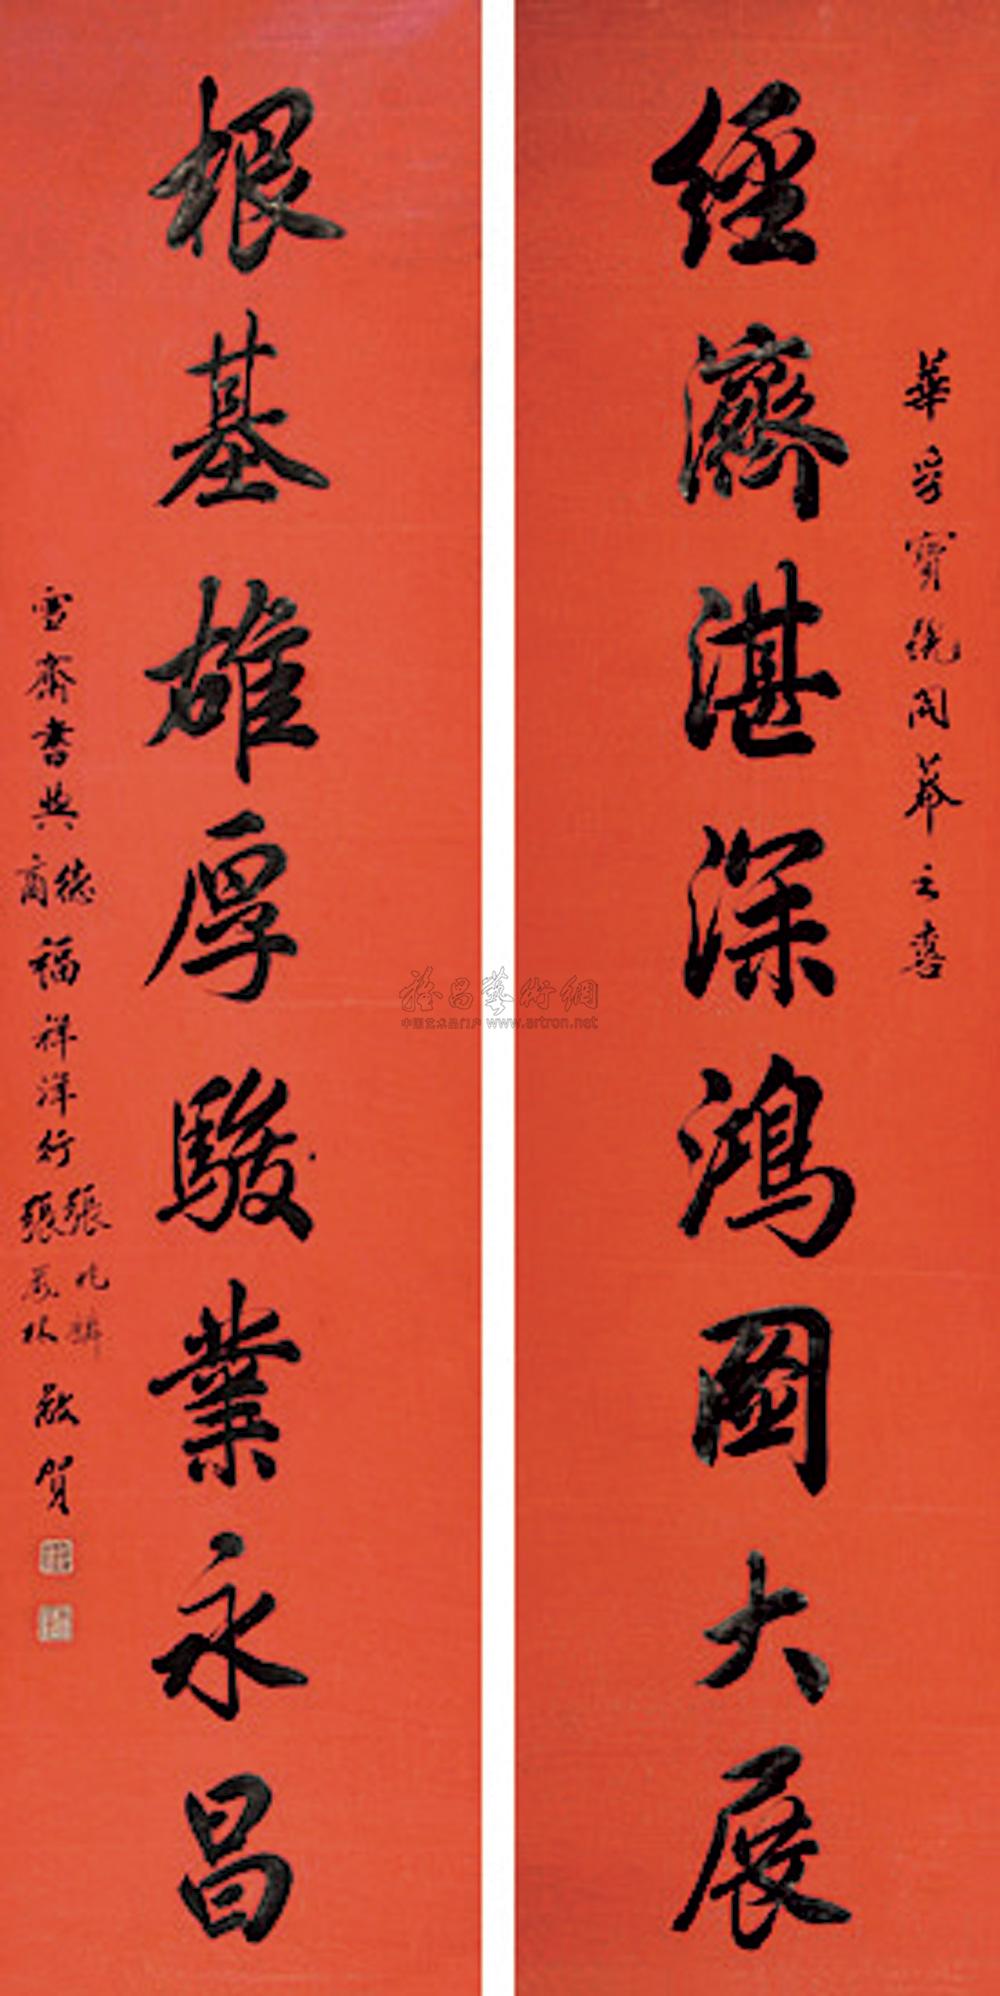 華芳寶號開幕之喜
經濟湛深鴻圖大展
根基雄厚駿業永昌
雪齋書興德商福祥洋行張兆麟張萬林敬賀
雅昌藝術網
中国艺术品门户 www.artron.net